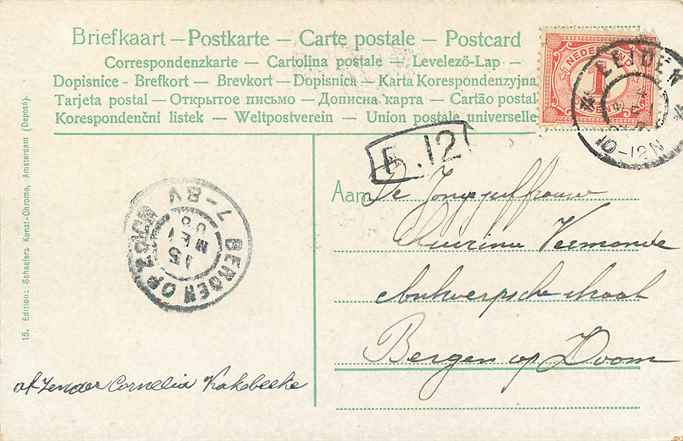 Briefkaart — Postkarte — Carte postale — Postcard
Correspondenzkarte — Cartolina postale — Levelező-Lap —
Dopisnice - Brefkort — Brevkort — Dopisnica — Karta Korespondenzyjna
Tarjeta postal — Открытое письмо — Дописна карта — Cartão postal
Korespondenční listek — Weltpostverein — Union postale universelle
NEDERLAND
1
LEIDEN
4
10-12N
5.12
7-8V
15
MEI
08
BERGEN OP ZOOM
Aan
De Jongejufvrouw
Vermonde
Antwerpschestraat
Bergen op Zoom
afzender Cornelia Kakebeeke
15. Edition: Schaefers Kunst-Chromo, Amsterdam (Depost).